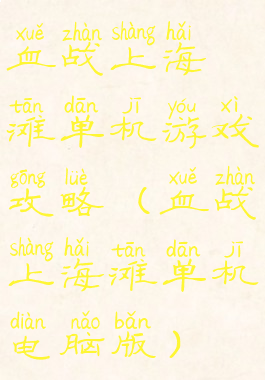 xuě zhàn shàng hǎi
血战上海
tān dān jī yóu xì
滩单机游戏
gōng lüè xuě zhàn
攻略（血战
shàng hǎi tān dān jī
上海滩单机
diàn nǎo bǎn
电脑版）